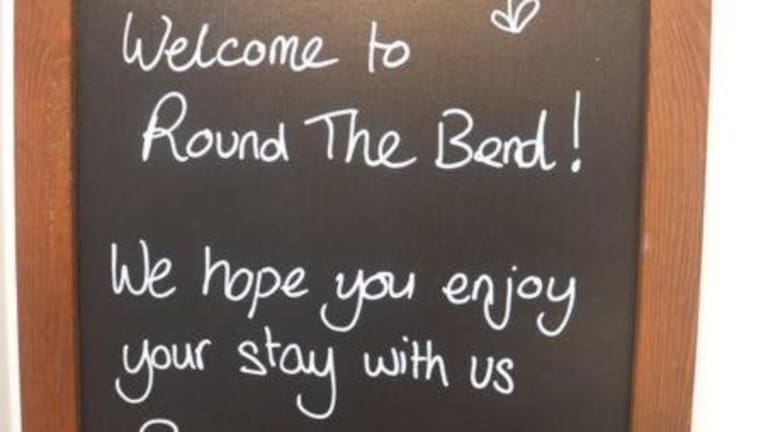 Welcome to
Round The Bend!
We hope you enjoy
your stay with us